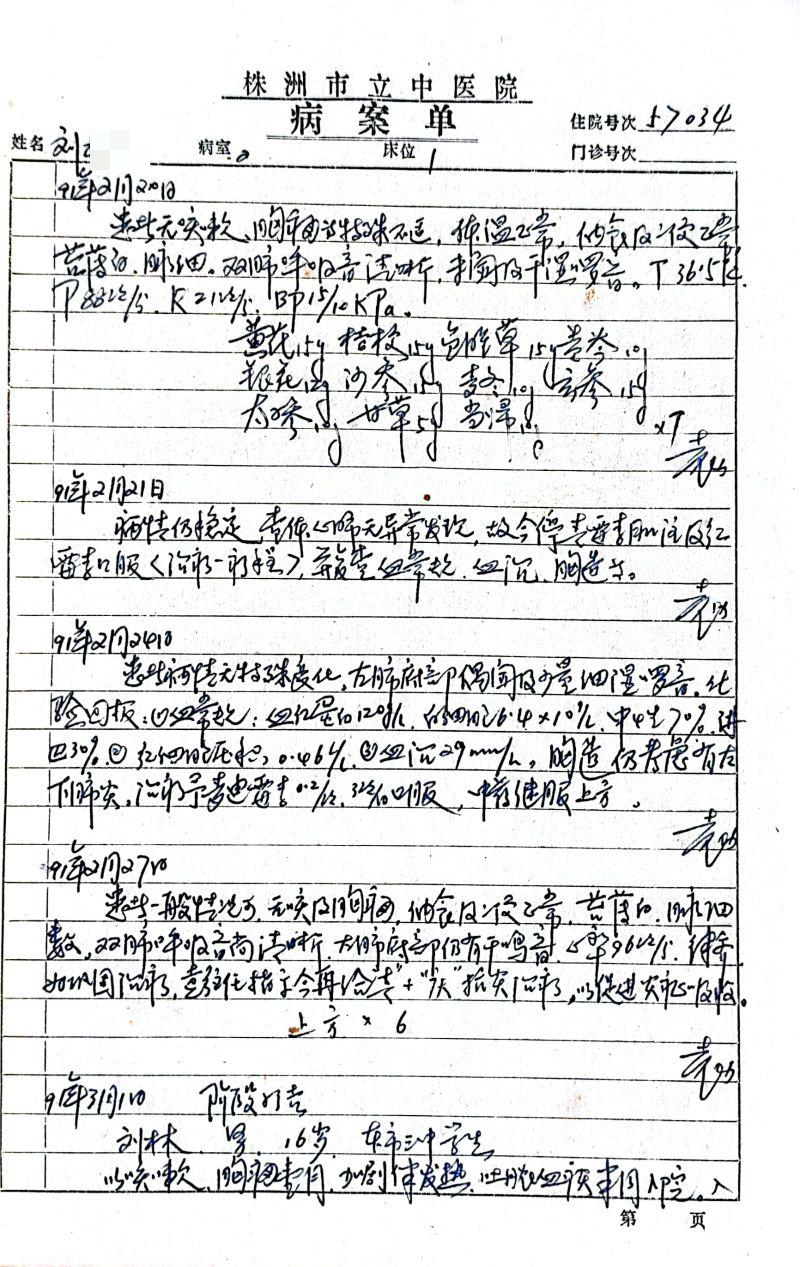 株洲市立中医院
病案单
住院号次 57034
姓名 刘 病室 床位 1 门诊号次
91年2月20日
患者无咳嗽、胸痛等特殊不适，体温正常，纳食及二便正常
苔薄白，脉细。双肺呼吸音清晰，未闻及干湿啰音。T 36.5℃
P 88次/分 R 21次/分 BP 15/10 KPa。
黄芪15g 桔梗15g 鱼腥草15g 黄芩10g
银花 沙参15g 麦冬10g 玄参15g
太子参 甘草5g 当归10g
袁
91年2月21日
病情仍稳定，查体心肺无异常发现，故今停青霉素肌注及红
霉素口服〈治疗一疗程〉，并复查血常规、血沉、胸透。
袁
91年2月24日
患者病情无特殊变化，左肺底部偶闻及少量细湿啰音，化
验回报：①血常规：血红蛋白120g/L 白细胞6.4×10⁹/L 中性70% 淋
巴30% ②红细胞压积 0.46 L/L ③血沉29mm/h。胸透仍考虑有左
下肺炎。治疗予麦迪霉素0.2/次 3次/日口服，中药继服上方。
袁
91年2月27日
患者一般情况可，无咳及胸痛，纳食及二便正常，苔薄白，脉细
数，双肺呼吸音尚清晰，左肺底部仍有干鸣音，心率96次/分，
治疗，主任指示今再给"青"+"庆"抗炎治疗，以促进炎症吸收。
上方×6
袁
91年3月1日 阶段小结
刘林 男 16岁 本市三中学生
以咳嗽、胸痛 加剧伴发热、吐脓血痰 入院。入
第 页